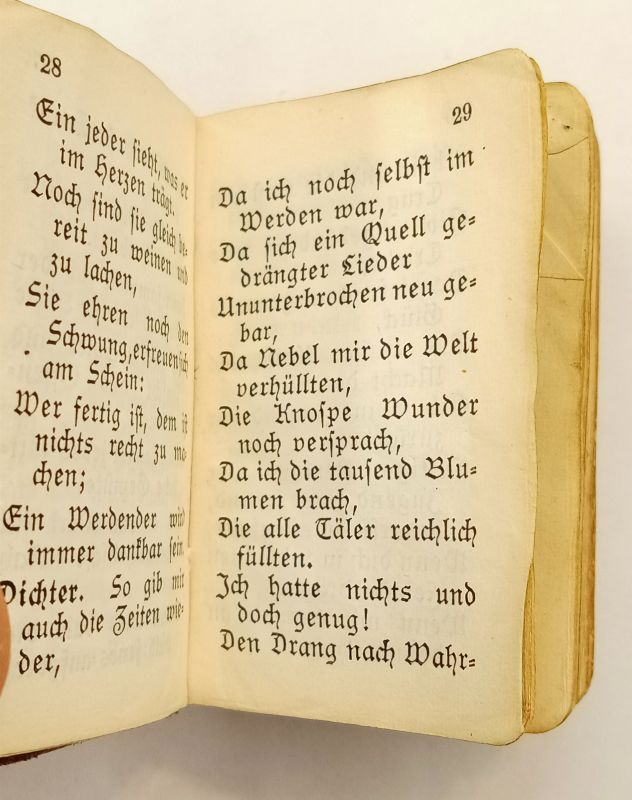 28
Ein jeder sieht, was er
im Herzen trägt.
Noch sind sie gleich be-
reit zu weinen und
zu lachen,
Sie ehren noch den
Schwung, erfreuen sich
am Schein:
Wer fertig ist, dem ist
nichts recht zu ma-
chen;
Ein Werdender wird
immer dankbar sein.
Dichter. So gib mir
auch die Zeiten wie-
der,
29
Da ich noch selbst im
Werden war,
Da sich ein Quell ge-
drängter Lieder
Ununterbrochen neu ge-
bar,
Da Nebel mir die Welt
verhüllten,
Die Knospe Wunder
noch versprach,
Da ich die tausend Blu-
men brach,
Die alle Täler reichlich
füllten.
Ich hatte nichts und
doch genug!
Den Drang nach Wahr-